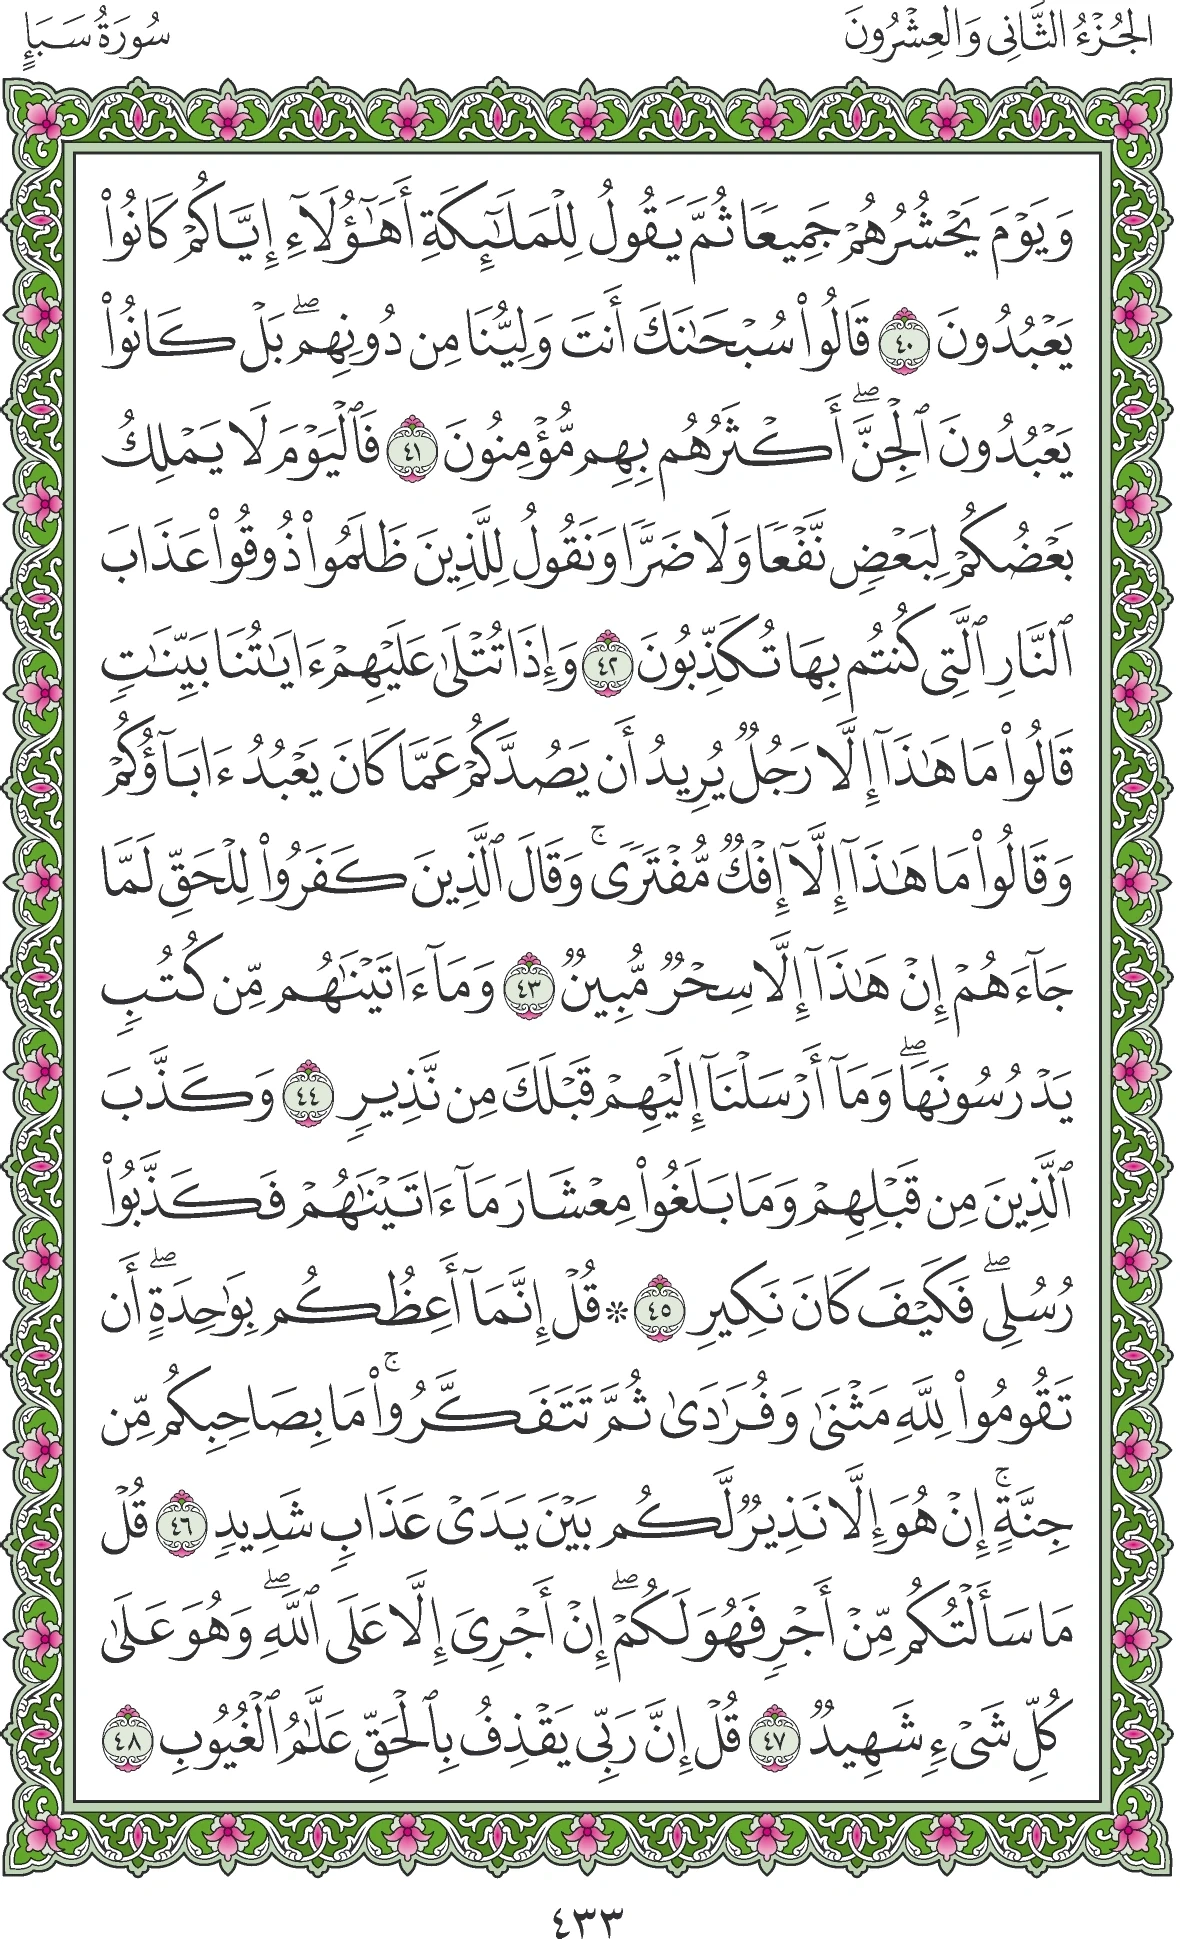 الجُزْءُ الثَّانِي وَالعِشْرُونَ
سُورَةُ سَبَإٍ
وَيَوْمَ يَحْشُرُهُمْ جَمِيعًا ثُمَّ يَقُولُ لِلْمَلَٰٓئِكَةِ أَهَٰٓؤُلَآءِ إِيَّاكُمْ كَانُوا۟
يَعْبُدُونَ ٤٠ قَالُوا۟ سُبْحَٰنَكَ أَنتَ وَلِيُّنَا مِن دُونِهِم ۖ بَلْ كَانُوا۟
يَعْبُدُونَ ٱلْجِنَّ ۖ أَكْثَرُهُم بِهِم مُّؤْمِنُونَ ٤١ فَٱلْيَوْمَ لَا يَمْلِكُ
بَعْضُكُمْ لِبَعْضٍ نَّفْعًا وَلَا ضَرًّا وَنَقُولُ لِلَّذِينَ ظَلَمُوا۟ ذُوقُوا۟ عَذَابَ
ٱلنَّارِ ٱلَّتِى كُنتُم بِهَا تُكَذِّبُونَ ٤٢ وَإِذَا تُتْلَىٰ عَلَيْهِمْ ءَايَٰتُنَا بَيِّنَٰتٍ
قَالُوا۟ مَا هَٰذَآ إِلَّا رَجُلٌ يُرِيدُ أَن يَصُدَّكُمْ عَمَّا كَانَ يَعْبُدُ ءَابَآؤُكُمْ
وَقَالُوا۟ مَا هَٰذَآ إِلَّآ إِفْكٌ مُّفْتَرًى ۚ وَقَالَ ٱلَّذِينَ كَفَرُوا۟ لِلْحَقِّ لَمَّا
جَآءَهُمْ إِنْ هَٰذَآ إِلَّا سِحْرٌ مُّبِينٌ ٤٣ وَمَآ ءَاتَيْنَٰهُم مِّن كُتُبٍ
يَدْرُسُونَهَا ۖ وَمَآ أَرْسَلْنَآ إِلَيْهِمْ قَبْلَكَ مِن نَّذِيرٍ ٤٤ وَكَذَّبَ
ٱلَّذِينَ مِن قَبْلِهِمْ وَمَا بَلَغُوا۟ مِعْشَارَ مَآ ءَاتَيْنَٰهُمْ فَكَذَّبُوا۟
رُسُلِى ۖ فَكَيْفَ كَانَ نَكِيرِ ٤٥ ۞ قُلْ إِنَّمَآ أَعِظُكُم بِوَٰحِدَةٍ ۖ أَن
تَقُومُوا۟ لِلَّهِ مَثْنَىٰ وَفُرَٰدَىٰ ثُمَّ تَتَفَكَّرُوا۟ ۚ مَا بِصَاحِبِكُم مِّن
جِنَّةٍ ۚ إِنْ هُوَ إِلَّا نَذِيرٌ لَّكُم بَيْنَ يَدَىْ عَذَابٍ شَدِيدٍ ٤٦ قُلْ
مَا سَأَلْتُكُم مِّنْ أَجْرٍ فَهُوَ لَكُمْ ۖ إِنْ أَجْرِىَ إِلَّا عَلَى ٱللَّهِ ۖ وَهُوَ عَلَىٰ
كُلِّ شَىْءٍ شَهِيدٌ ٤٧ قُلْ إِنَّ رَبِّى يَقْذِفُ بِٱلْحَقِّ عَلَّٰمُ ٱلْغُيُوبِ ٤٨
٤٣٣